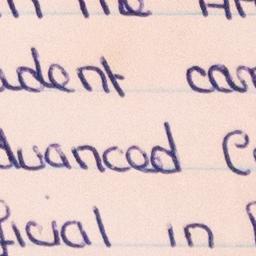 in the
udent can
dvanced C
ficial in